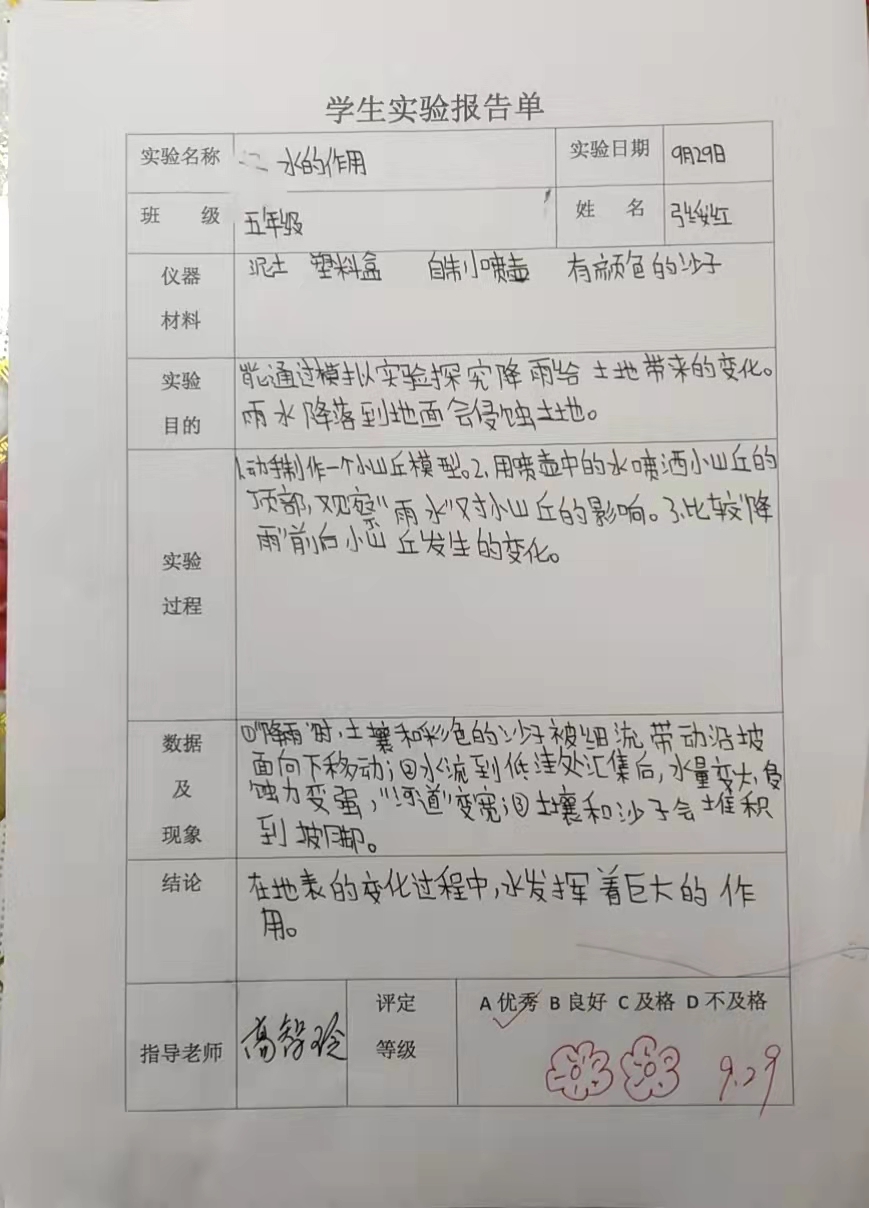 学生实验报告单
实验名称 水的作用 实验日期 9月29日
班 级 五年级 姓 名 张红
仪器 材料 泥土 塑料盒 自制小喷壶 有颜色的沙子
实验 目的 能通过模拟实验探究降雨给土地带来的变化。
雨水降落到地面会侵蚀土地。
实验 过程 1、动手制作一个小山丘模型。2、用喷壶中的水喷洒小山丘的
顶部,观察“雨水”对小山丘的影响。3、比较“降
雨”前后小山丘发生的变化。
数据 及 现象 ①“降雨”时,土壤和彩色的沙子被细流带动沿坡
面向下移动;②水流到低洼处汇集后,水量变大,侵
蚀力变强,“河道”变宽;③土壤和沙子会堆积
到坡脚。
结论 在地表的变化过程中,水发挥着巨大的作
用。
指导老师 高智玲 评定 等级 A 优秀 B 良好 C 及格 D 不及格
9.29